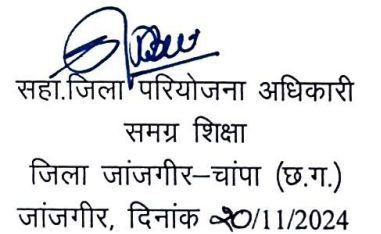 सहा.जिला परियोजना अधिकारी
समग्र शिक्षा
जिला जांजगीर–चांपा (छ.ग.)
जांजगीर, दिनांक 20/11/2024